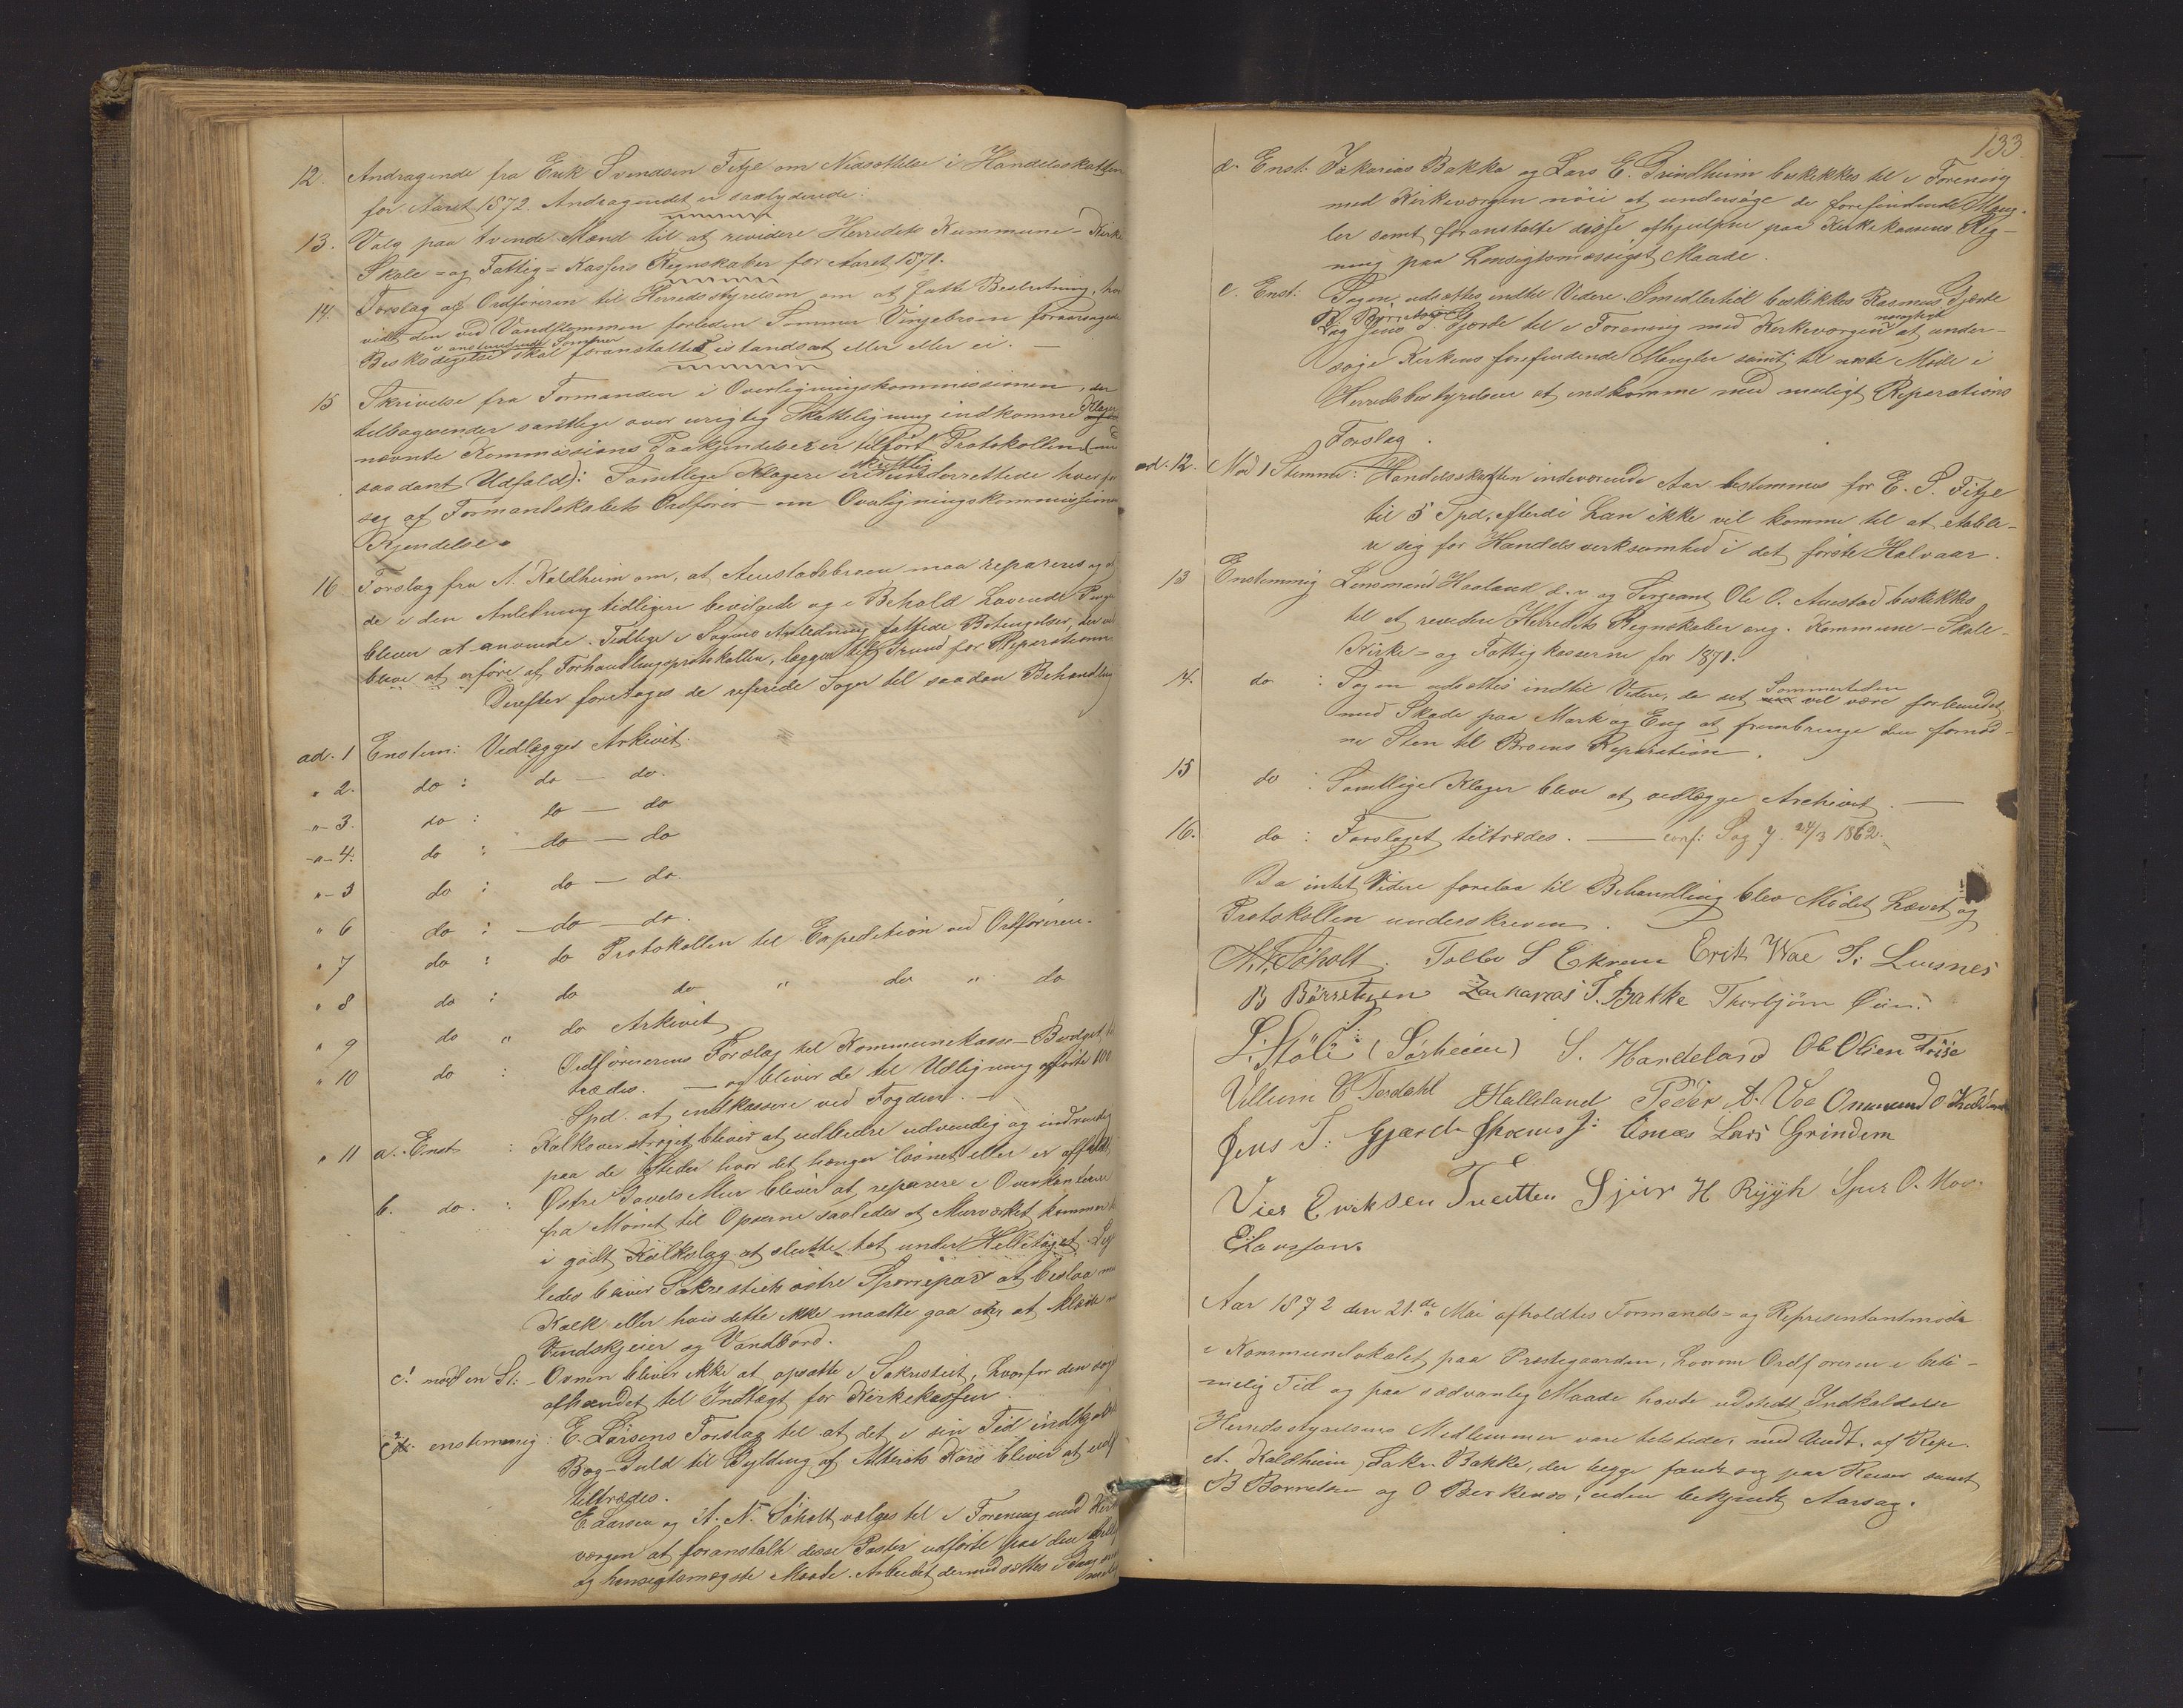 12. Andragende fra Erik Svendsen Fitje om Nedsættelse i Handelsskatten
for Aaret 1872. Andragendet er saalydende:
13. Valg paa tvende Mænd til at revidere Herredets Kommune- Kirke
Skole- og Fattig-Kassers Regnskaber for Aaret 1871.
14. Forslag af Ordføreren til Herredsstyrelsen om at fatte Beslutning, hor
vidt den ved Vandflommen forleden Sommer Vinjebroen foraarsagede
i anstundende Sommer
Beskadigelse skal foranstaltet istandsat eller eller ei. —
15 Skrivelse fra Formanden i Overligningskommissionen, der
tilbagesender samtlige over urigtig Skatteligning indkomne Klager
nævnte Kommissions Paakjendelser er tilført Protokollen (med
saadant Udfald): Samtlige Klagere ere skriftlig underrettede hver for
seg af Formandskabets Ordfører om Overligningskommissionens
Kjendelse.
16 Forslag fra A. Kaldheim om, at Austadsbroen maa repareres og at
de i den Anledning tidligere bevilgede og i Behold havende Penge
bliver at anvende. Tidlige i Sagens Anledning fattede Betingelser, der vil
bleve at erføre af Forhandlingsprotokollen, lægges til Grund for Reparationen.
Derefter foretages de refererede Sager til saadan Behandling
ad. 1 Enstem: Vedlægges Arkivet.
" 2. do : do — do.
-"- 3. do : do — do
-"- 4. do : do — do
"- 5 do : do — do.
" 6 do : do — do.
" 7 do : do Protokollen til Expedition ved Ordføreren.
" 8 do : do do " do " do
" 9 do " do Arkivet
" 10 do : Ordførerens Forslag til Kommunekasse-Budget
trædes. — og bliver de til Udligning opførte 100
Spd. at indkassere ved Fogden. —
" 11 a. Enst. : Kalkoverstrøget bliver at udbedre udvendig og indvendig
paa de Steder hvor det hænger løsnet eller er affaldt
b. do. : Østre Gavels Mur bliver at reparere i Overkanterne
fra Mønet til Opserne saaledes at Murværket kommer
i godt Kalkslag at slutte tæt under Helletaget. Lige
ledes bliver Sakrestiets østre Sperrepar at beslaa med
Kalk eller hvis dette ikke maatte gaa an, at klæde med
Vindskjeier og Vandbord.
c! mod en St: - Ovnen bliver ikke at opsætte i Sakrestiet, hvorfor den søges
afhændet til Indtægt for Kirkekassen.
c2. enstemmig: E. Larsens Forslag til at det i sin Tid indkjøbte
Bog-Guld til Gylding af Alterets Kors bliver at udf
tiltrædes.
E. Larsen og A. N. Søholt vælges til i Forening med Kirke
værgen at foranstalte disse Poster udførte paa den
og hensigtsmægste Maade. Arbeidet dermed sættes
133
d. Enst: Zakarias Bakke og Lars E. Grindheim beskikkes til i Forening
med Kirkeværgen nøie at undersøge de forefindende Mang-
ler samt foranstalte disse afhjulpne paa Kirkekassens Reg-
ning paa hensigtsmæssigst Maade.
e. Enst: Sagen udsættes indtil Videre. Imidlertid beskikkes Rasmus Gjerde
B. Børretsen
og Jens T. Gjerde til i Forening med Kirkeværgen nøiagtigt at under-
søge Kirkens forefindende Mangler samt til næste Møde i
Herredsbestyrelsen at indkomme med muligt Reparations
Forslag.
ad. 12. Mod 1 Stemme: Handelsskatten indeværende Aar bestemmes for E. S. Fitje
til 5 Spd, efterdi han ikke vil komme til at etable-
re sig for Handelsverksomhed i det første Halvaar.
13 Enstemmig Lensmand Haaland d. y. og Sergeant Ole O. Austad beskikkes
til at revidere Herredets Regnskaber ang. Kommune- Skole-
Kirke- og Fattigkasserne for 1871.
14. do : Sagen udsættes indtil Videre, da det Sommertiden vil være forbundet
med Skade paa Mark og Eng at frembringe den fornød-
ne Sten til Broens Reparation.
15 do : Samtlige Klager bleve at vedlægge Archivet. —
16. do : Forslaget tiltrædes. — conf: Sag 7. 24/3 1862.
Da intet Videre forelaa til Behandling blev Mødet hævet og
Protokollen underskreven.
A. N. Søholt. Tollev S Ekrene Erik Wae S: Lunsnes
B Børretzen Zakarias T. Bakke Thorbjørn Øien.
L. Støle (Sørheim) S. Handeland Ole Olsen Frøse
Villum C Tesdahl Halleland Peder A. Voe Ommund O
Jens T: Gjærde Lars Grindem
Vier Eriksen Tveitten Sjur H Rygh Sjur O. Moe.
E Larssen.
Aar 1872 den 21.de Mai afholdtes Formands- og Representantmøde
i Kommunelokalet paa Prestegaarden, hvorom Ordføreren i beti-
melig Tid og paa sædvanlig Maade havde udstedt Indkaldelse
Herredsstyrelsens Medlemmer vare tilstede, med Undt. af Repr.
A. Kaldheim, Zakr. Bakke, der begge fandt sig paa Reiser samt
B Børretsen og O Berkenes, uden bekjendt Aarsag.